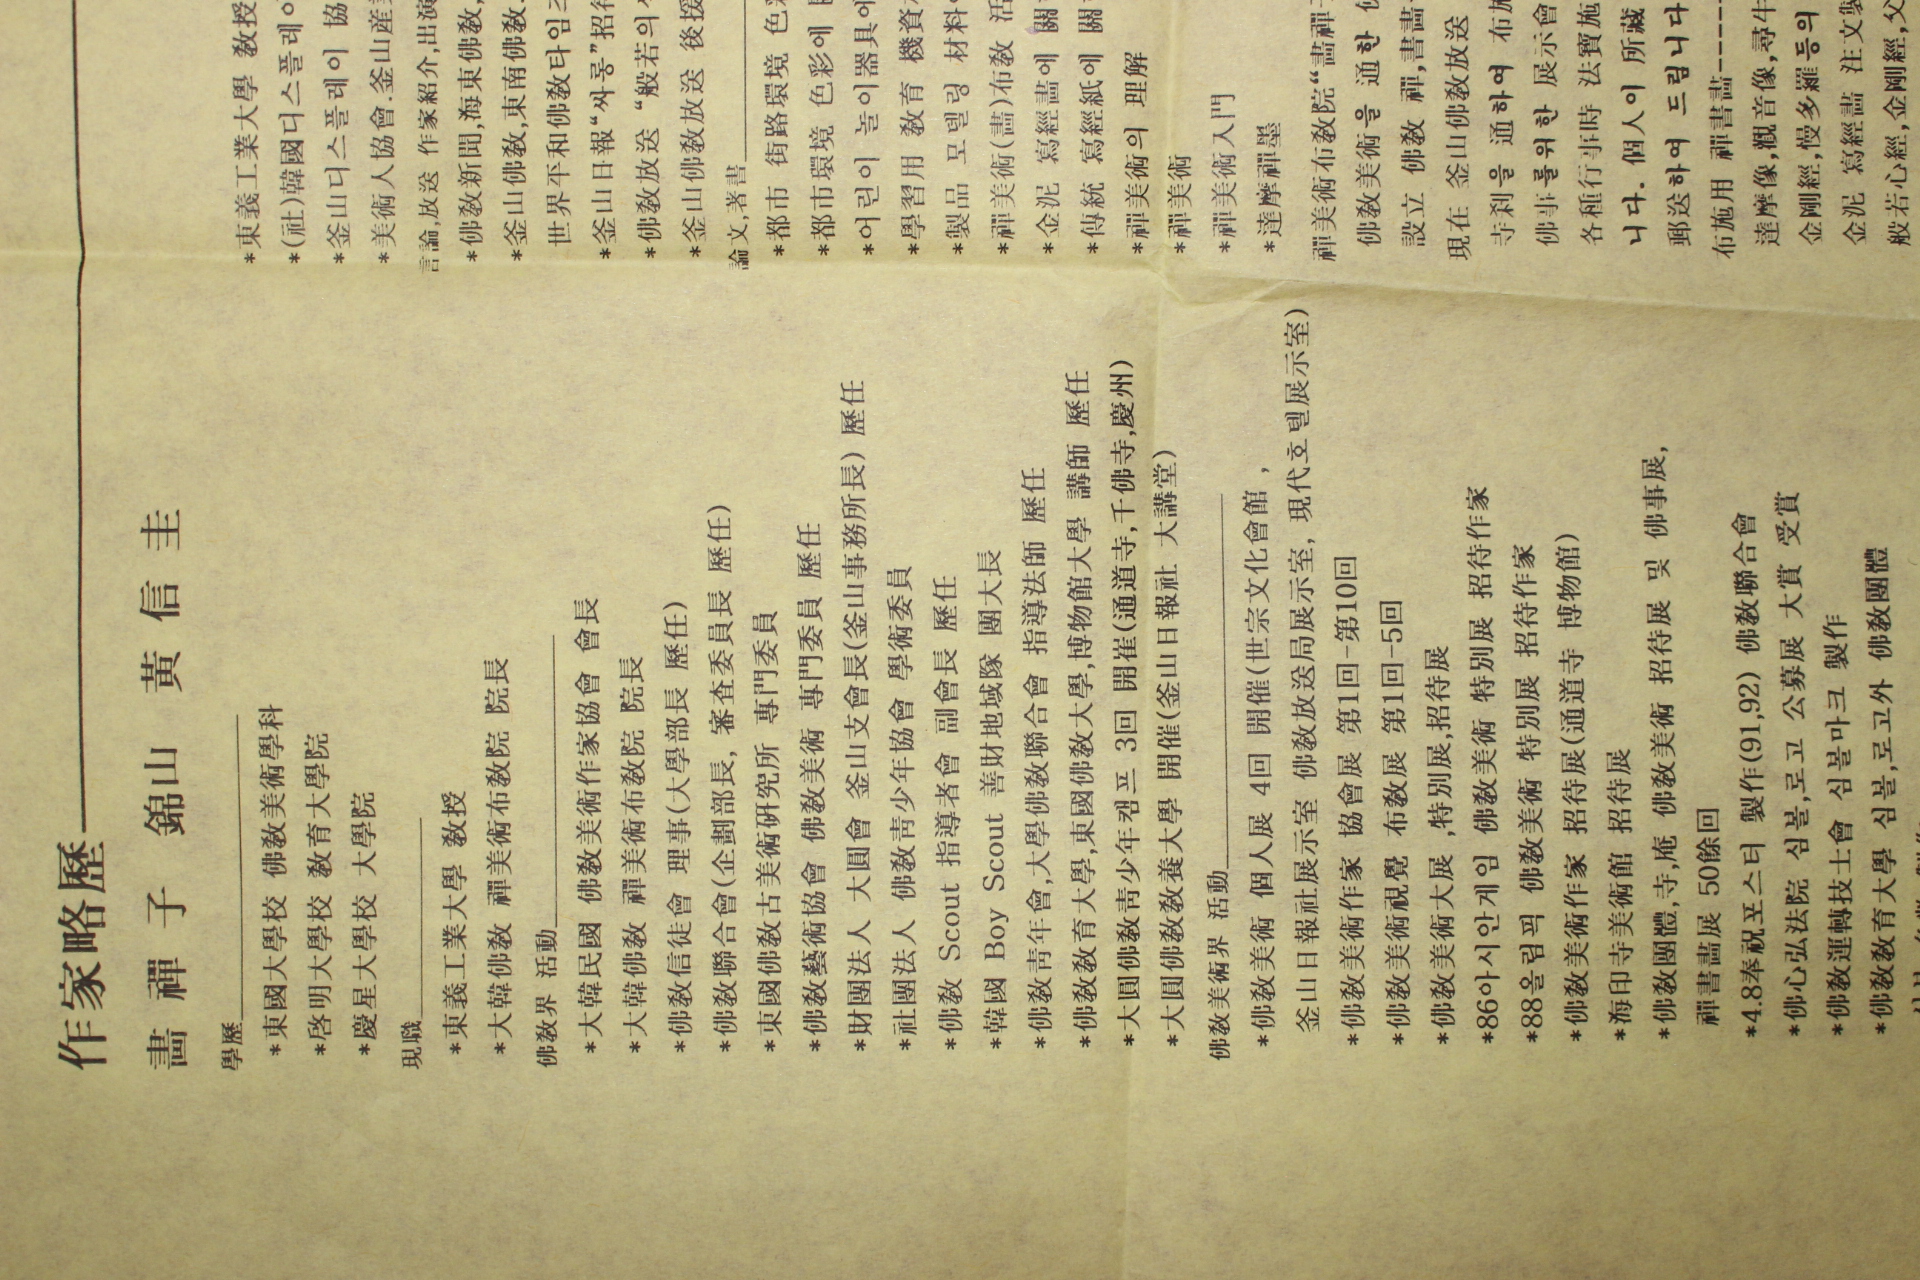 作家略歷
畵禪子 錦山 黃信圭
學歷
*東國大學校 佛敎美術學科
*啓明大學校 敎育大學院
*慶星大學校 大學院
現職
*東義工業大學 敎授
*大韓佛敎 禪美術布敎院 院長
佛敎界 活動
*大韓民國 佛敎美術作家協會 會長
*大韓佛敎 禪美術布敎院 院長
*佛敎信徒會 理事(大學部長 歷任)
*佛敎聯合會(企劃部長, 審査委員長 歷任)
*東國佛敎古美術硏究所 專門委員
*佛敎藝術協會 佛敎美術 專門委員 歷任
*財團法人 大圓會 釜山支會長(釜山事務所長) 歷任
*社團法人 佛敎靑少年協會 學術委員
*佛敎 Scout 指導者會 副會長 歷任
*韓國 Boy Scout 善財地域隊 團大長
*佛敎靑年會,大學佛敎聯合會 指導法師 歷任
*佛敎敎育大學,東國佛敎大學,博物館大學 講師 歷任
*大圓佛敎靑少年캠프 3回 開崔(通道寺,千佛寺,慶州)
*大圓佛敎敎養大學 開催(釜山日報社 大講堂)
佛敎美術界 活動
*佛敎美術 個人展 4回 開催(世宗文化會館 ,
釜山日報社展示室 佛敎放送局展示室, 現代호텔展示室)
*佛敎美術作家 協會展 第1回-第10回
*佛敎美術視覺 布敎展 第1回-5回
*佛敎美術大展 ,特別展,招待展
*86아시안게임 佛敎美術 特別展 招待作家
*88올림픽 佛敎美術 特別展 招待作家
*佛敎美術作家 招待展(通道寺 博物館)
*海印寺美術館 招待展
*佛敎團體,寺,庵 佛敎美術 招待展 및 佛事展,
禪書畵展 50餘回
*4.8奉祝포스터 製作(91,92) 佛敎聯合會
*佛心弘法院 심볼,로고 公募展 大賞 受賞
*佛敎運轉技士會 심볼마크 製作
*佛敎敎育大學 심볼,로고外 佛敎團體
*東義工業大學 敎授
*(社)韓國디스플레이
*釜山디스플레이 協
*美術人協會.釜山産
言論,放送 作家紹介,出演
*佛敎新聞,海東佛敎,
*釜山佛敎,東南佛敎
世界平和佛敎타임즈
*釜山日報“싸롱”招待
*佛敎放送 “般若의
*釜山佛敎放送 後援
論文,著書
*都市 街路環境 色彩
*都市環境 色彩에
*어린이 놀이器具에
*學習用 敎育 機資
*製品 모델링 材料
*禪美術(畵)布敎 活
*金泥 寫經畵에 關
*傳統 寫經紙에 關
*禪美術의 理解
*禪美術
*禪美術入門
*達摩禪墨
禪美術布敎院“畵禪子
佛敎美術을 通한
設立 佛敎 禪,書畵
現在 釜山佛敎放送
寺刹을 通하여 布施
佛事를위한 展示會
各種行事時 法寶施
니다. 個人이 所藏
郵送하여 드립니다
布施用 禪書畵-----
達摩像,觀音像,尋牛
金剛經,慢多羅등의
金泥 寫經畵 注文製
般若心經,金剛經,父